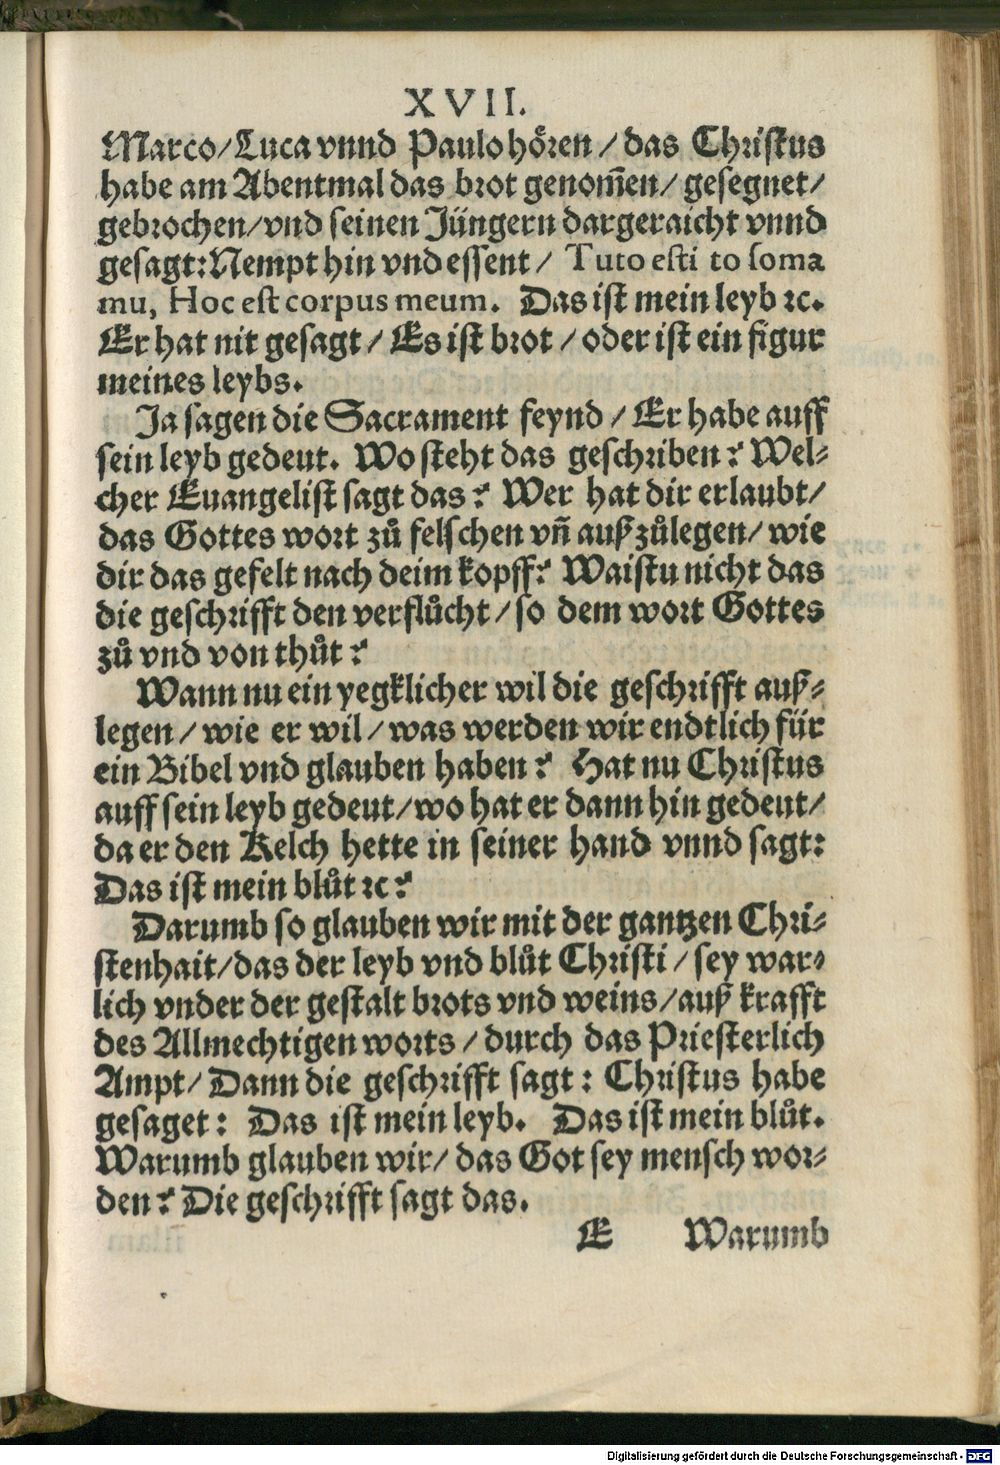 XVII.
Marco/Luca vnnd Paulo hoͤren / das Christus
habe am Abentmal das brot genom̃en/ gesegnet/
gebrochen/vnd seinen Jüngern dargeraicht vnnd
gesagt: Nempt hin vnd essent / Tuto esti to soma
mu, Hoc est corpus meum. Das ist mein leyb ꝛc.
Er hat nit gesagt / Es ist brot / oder ist ein figur
meines leybs.
Ja sagen die Sacrament feynd / Er habe auff
sein leyb gedeut. Wo steht das geschriben? Wel-
cher Euangelist sagt das? Wer hat dir erlaubt/
das Gottes wort zů felschen vn̄ außzůlegen/ wie
dir das gefelt nach deim kopff? Waistu nicht das
die geschrifft den verflůcht / so dem wort Gottes
zů vnd von thůt?
Wann nu ein yegklicher wil die geschrifft auß-
legen / wie er wil / was werden wir endtlich für
ein Bibel vnd glauben haben? Hat nu Christus
auff sein leyb gedeut/wo hat er dann hin gedeut/
da er den Kelch hette in seiner hand vnnd sagt:
Das ist mein blůt ꝛc?
Darumb so glauben wir mit der gantzen Chri-
stenhait/das der leyb vnd blůt Christi / sey war-
lich vnder der gestalt brots vnd weins/auß krafft
des Allmechtigen worts / durch das Priesterlich
Ampt/ Dann die geschrifft sagt: Christus habe
gesaget: Das ist mein leyb. Das ist mein blůt.
Warumb glauben wir/ das Got sey mensch wor-
den? Die geschrifft sagt das.
E Warumb
Digitalisierung gefördert durch die Deutsche Forschungsgemeinschaft - DFG